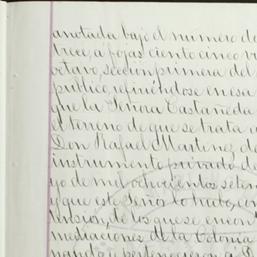 anotada bajo el numero do
trece, a fojas ciento cinco vu
octavo, seccion primera del
publico, refiriendose en esa
que la Señora Castañeda
el terreno de que se trata a
Don Rafael Martinez, de
instrumento privado de
yo de mil ochocientos seten
y que este Señor lo hubo, con
tension, de los que se encon
mediaciones de la Colonia